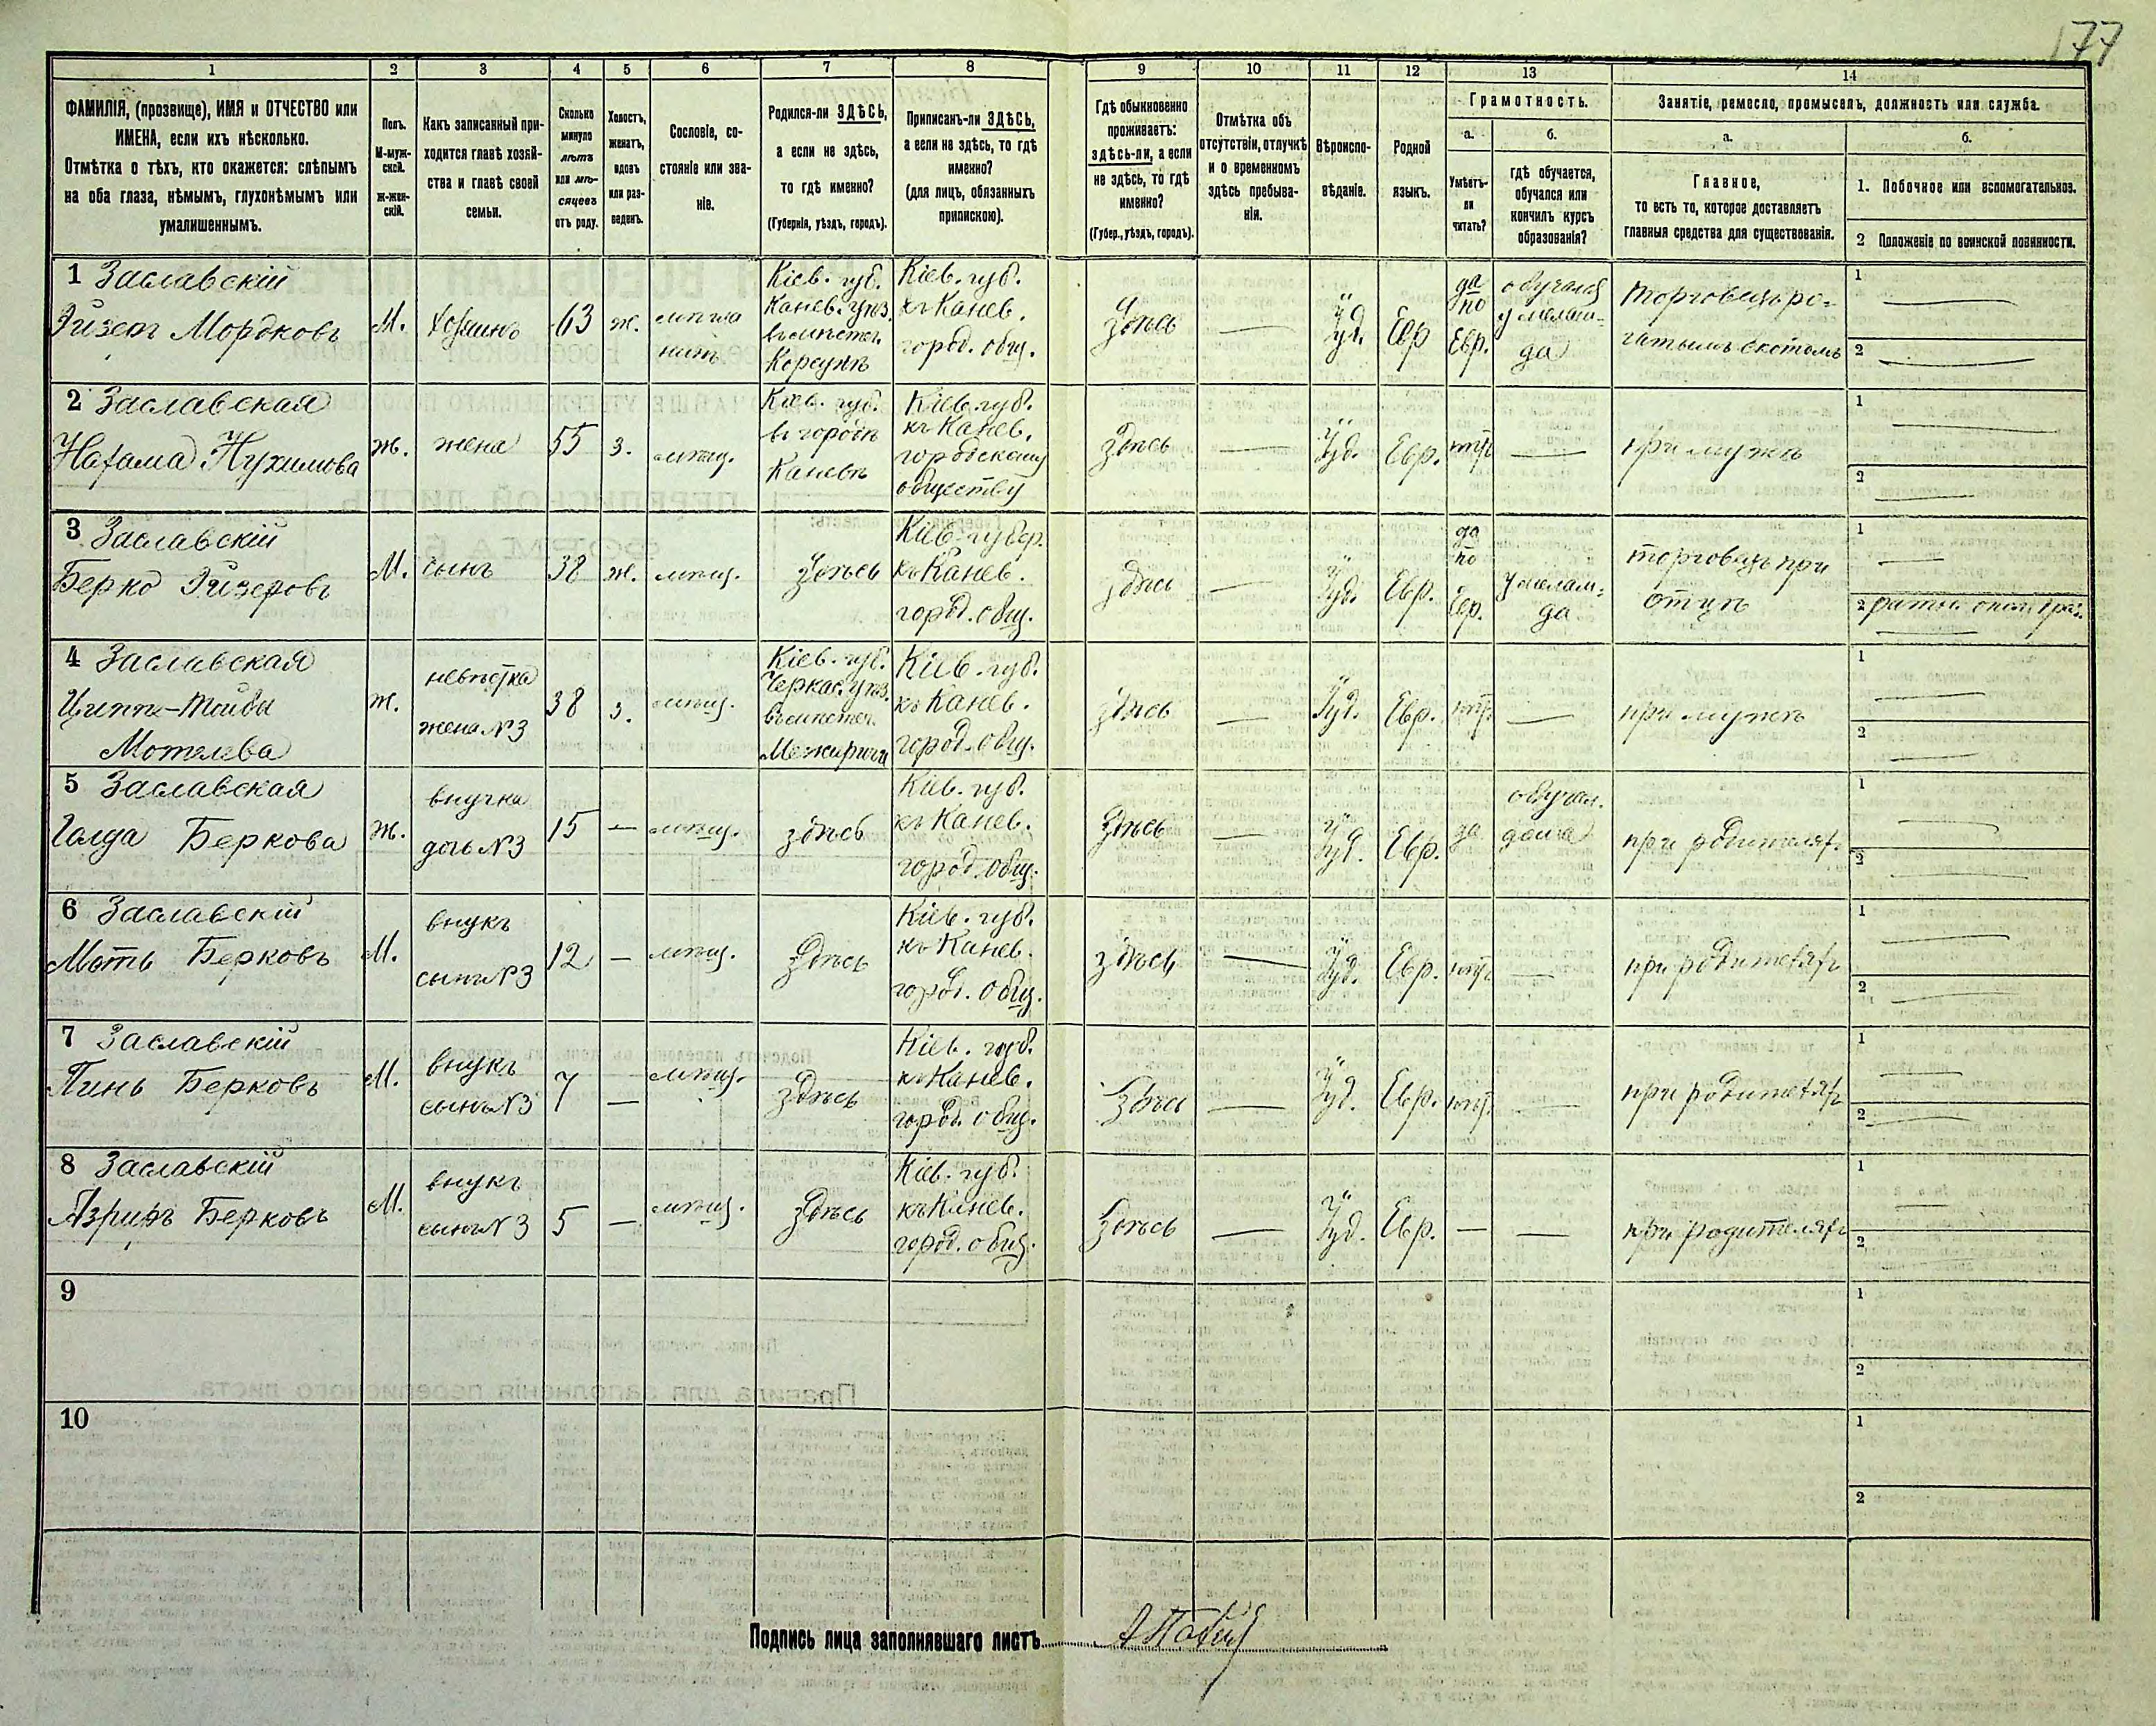 177
1 2 3 4 5 6 7 8 9 10 11 12 13 14
ФАМИЛІЯ, (прозвище), ИМЯ и ОТЧЕСТВО или
ИМЕНА, если ихъ нѣсколько.
Отмѣтка о тѣхъ, кто окажется: слѣпымъ
на оба глаза, нѣмымъ, глухонѣмымъ или
умалишеннымъ.
Полъ.
М-муж-
ской.
ж-жен-
скій.
Какъ записанный при-
ходится главѣ хозяй-
ства и главѣ своей
семьи.
Сколько
минуло
лѣтъ
или мѣ-
сяцевъ
отъ роду.
Холостъ,
женатъ,
вдовъ
или раз-
веденъ.
Сословіе, со-
стояніе или зва-
ніе.
Родился-ли ЗДѢСЬ,
а если не здѣсь,
то гдѣ именно?
(Губернія, уѣздъ, городъ).
Приписанъ-ли ЗДѢСЬ,
а если не здѣсь, то гдѣ
именно?
(для лицъ, обязанныхъ
припискою).
Гдѣ обыкновенно
проживаетъ:
здѣсь-ли, а если
не здѣсь, то гдѣ
именно?
(Губер., уѣздъ, городъ).
Отмѣтка объ
отсутствіи, отлучкѣ
и о временномъ
здѣсь пребыва-
ніи.
Вѣроиспо-
вѣданіе.
Родной
языкъ.
Грамотность.
а.
Умѣетъ-
ли
читать?
б.
гдѣ обучается,
обучался или
кончилъ курсъ
образованія?
Занятіе, ремесло, промыселъ, должность или служба.
а.
Главное,
то есть то, которое доставляетъ
главныя средства для существованія.
б.
1. Побочное или вспомогательное.
2 Положеніе по воинской повинности.
1 Заславскій
Эйзеръ Мордковъ
М.
хозяинъ
63
ж.
мѣща
нинъ
Кіев. губ.
Канев. уѣз.
въ мѣстеч.
Корсунѣ
Кіев. губ.
къ Канев.
город. общ.
Здѣсь
—
Іуд.
Евр
да
по
Евр.
обучался
у мелам-
да
торговецъ ро-
гатымъ скотомъ
1 —
2 —
2 Заславская
Нухимова
ж.
жена
55
з.
мѣщ.
Кіев. губ.
въ городѣ
Каневѣ
Кіев. губ.
къ Канев.
городскому
обществу
Здѣсь
—
Іуд.
Евр.
нѣт
—
при мужѣ
1 —
2 —
3 Заславскій
Берко Эйзеровъ
М.
сынъ
38
ж.
мѣщ.
Здѣсь
Кіев. губер.
къ Канев.
город. общ.
здѣсь
—
Іуд.
Евр.
да
по
Евр.
у мелам-
да
торговецъ при
отцѣ
1 —
2 ратн. опол.
4 Заславская
Мотелева
ж.
невѣстка
жена №3
38
з.
мѣщ.
Кіев. губ.
Черкас. уѣз.
въ мѣстеч.
Межиричи
Кіев. губ.
къ Канев.
город. общ.
здѣсь
—
Іуд.
Евр.
нѣт
—
при мужѣ
1 —
2 —
5 Заславская
Голда Беркова
ж.
внучка
дочь №3
15
—
мѣщ.
здѣсь
Кіев. губ.
къ Канев.
город. общ.
Здѣсь
—
Іуд.
Евр.
да
обучал.
дома
при родителях
1 —
2 —
6 Заславскій
Моть Берковъ
М.
внукъ
сынъ №3
12
—
мѣщ.
Здѣсь
Кіев. губ.
къ Канев.
город. общ.
здѣсь
—
Іуд.
Евр.
нѣт
—
при родителяхъ
1 —
2 —
7 Заславскій
Пинь Берковъ
М.
внукъ
сынъ №3
7
—
мѣщ.
здѣсь
Кіев. губ.
къ Канев.
город. общ.
Здѣсь
—
Іуд.
Евр.
нѣт
—
при родителяхъ
1 —
2 —
8 Заславскій
Берковъ
М.
внукъ
сынъ №3
5
—
мѣщ.
Здѣсь
Кіев. губ.
къ Канев.
город. общ.
Здѣсь
—
Іуд.
Евр.
—
—
при родителяхъ
1 —
2 —
9
1
2
10
1
2
Подпись лица заполнявшаго листъ